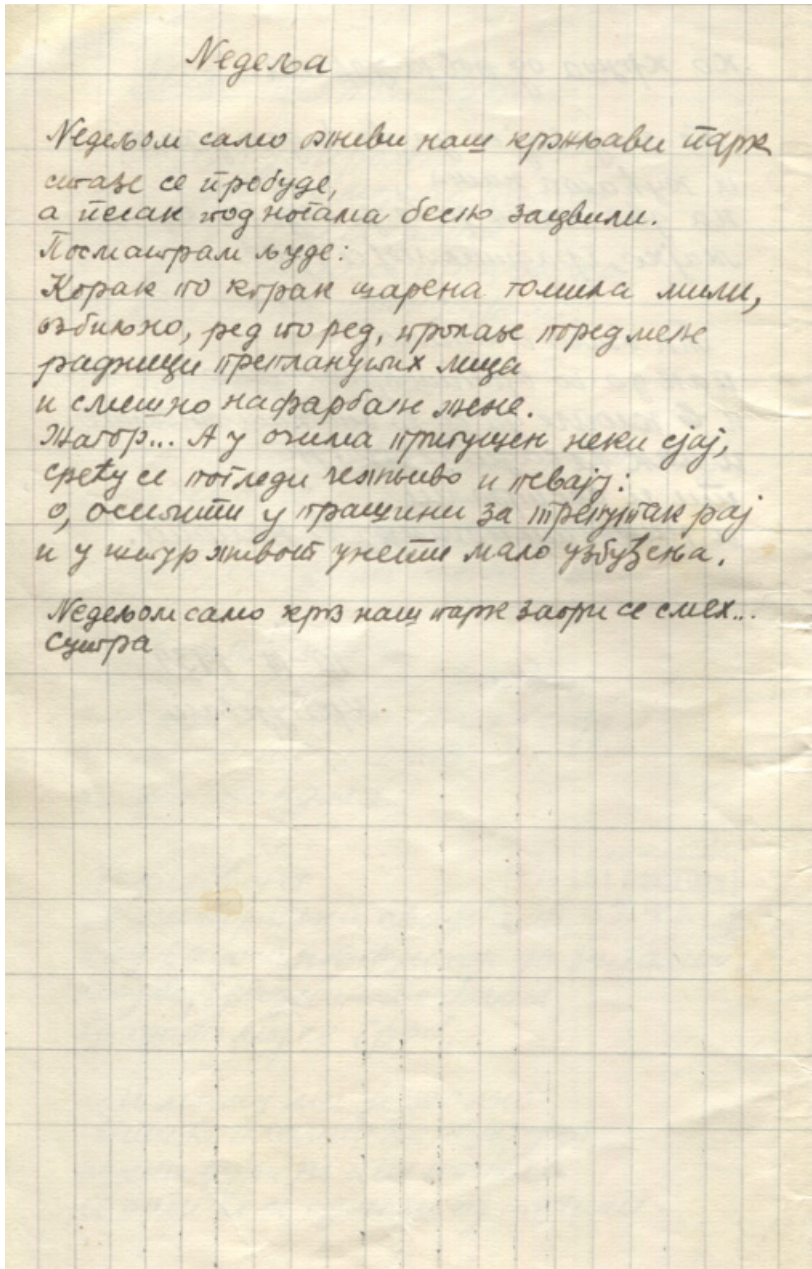 Nедеља
Nедељом само оживи наш кржљави парк
стазе се пробуде,
а песак под ногама бесно зацвили.
Посматрам људе:
Корак по корак шарена гомила мили,
озбиљно, ред по ред, пролазе поред мене
радници препланулих лица
и смешно нафарбане жене.
Жагор... А у очима пригушен неки сјај,
срећу се погледи чежњиво и певају:
о, осетити у прашини за трепутак рај
и у живот унети мало узбуђења.
Nедељом само кроз наш парк заори се смех...
Сутра